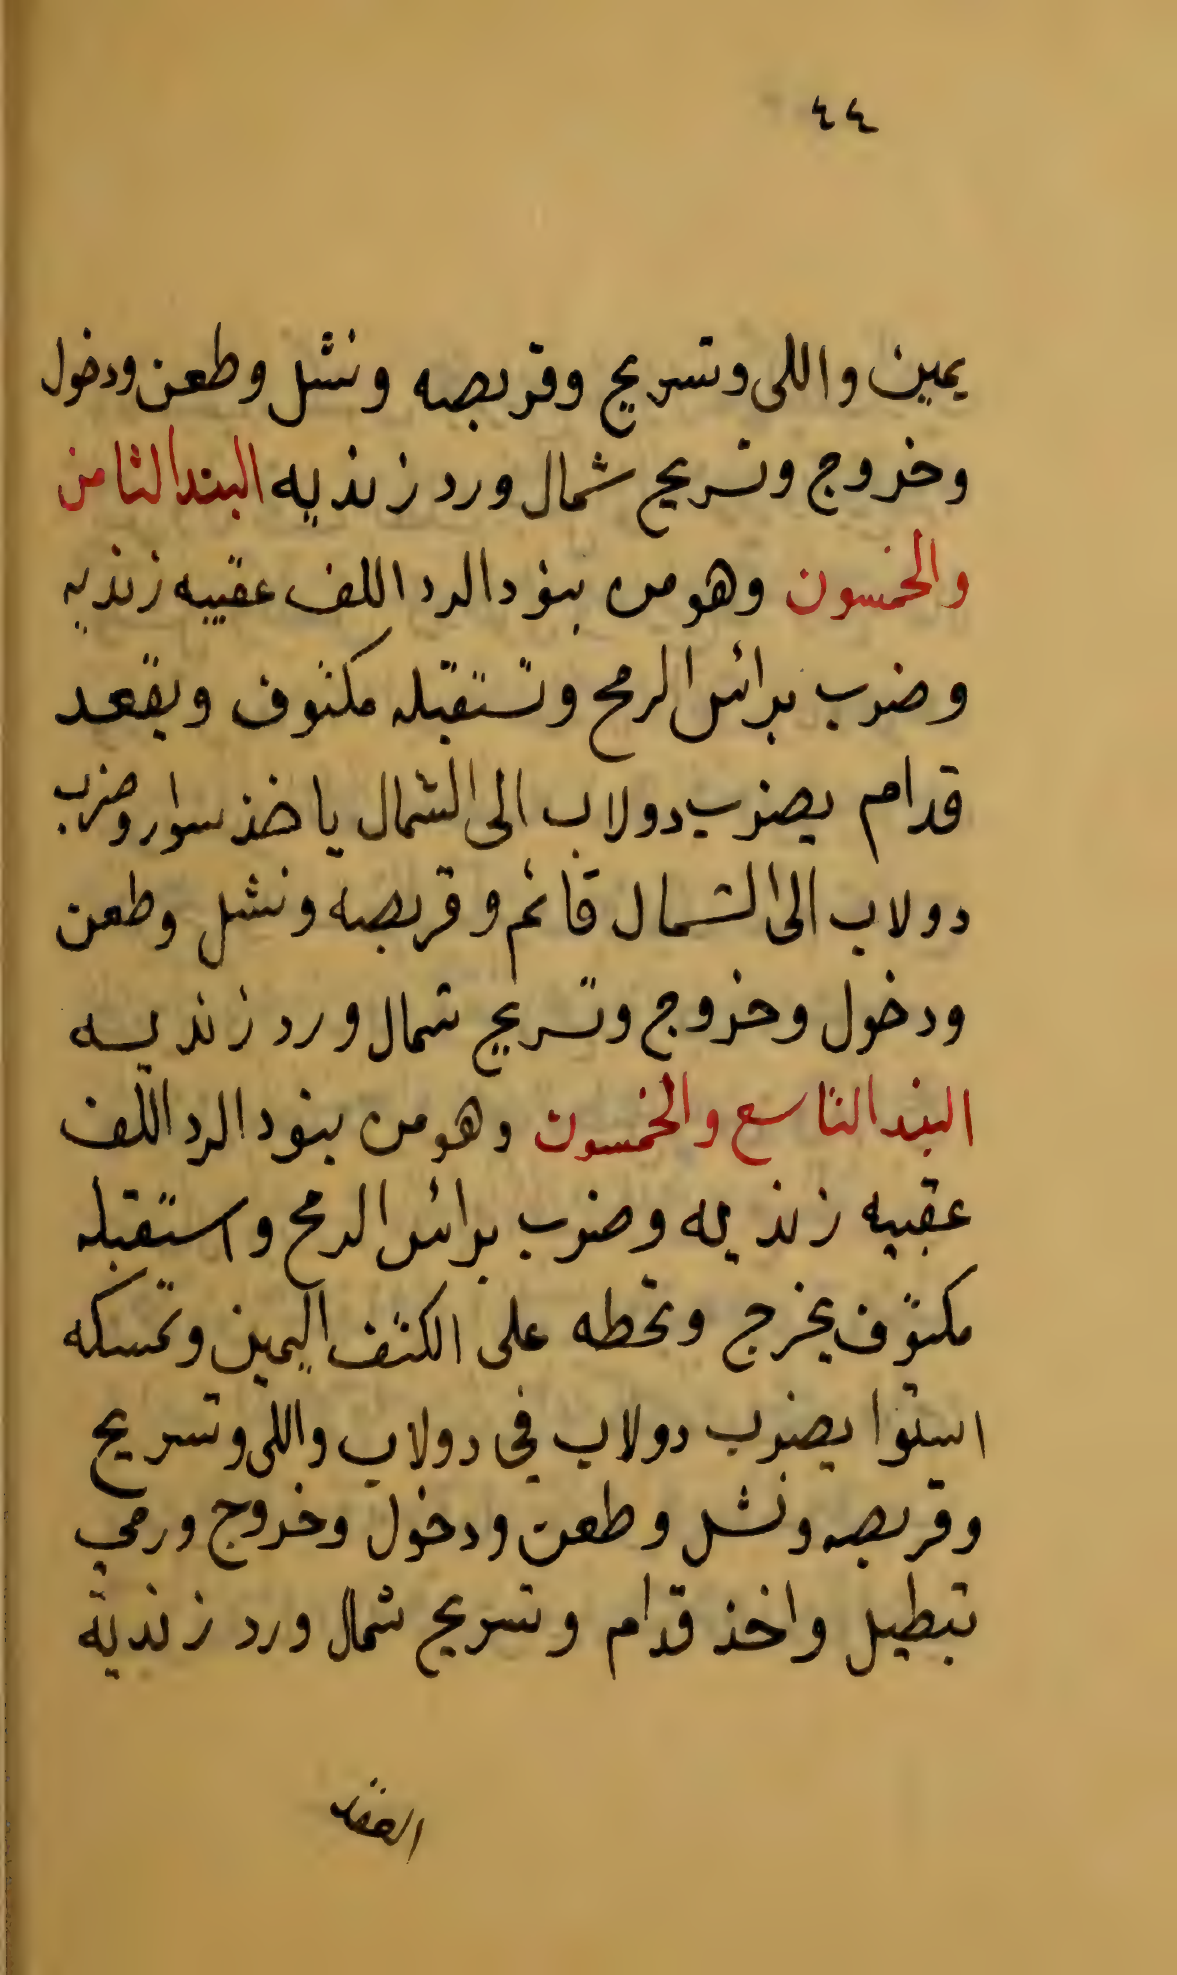 ٤٤
يمين واللى وتسريح وقربصه ونشل وطعن ودخول
وخروج وتسريح شمال ورد زنديه البند الثامن
والخمسون وهو من بنود الرد اللف عقبيه زنديه
وضرب برائس الرمح وتستقبله مكتوف ويقعد
قدام يضرب دولاب الى الشمال ياخذ سوار وضرب
دولاب الى الشمال قائم وقربصه ونشل وطعن
ودخول وخروج وتسريح شمال ورد زنديه
البند التاسع والخمسون وهو من بنود الرد اللف
عقبيه زنديه وضرب برائس الرمح واستقبله
مكتوف يخرج وتحطه على الكتف اليمين وتمسكه
استوا يضرب دولاب في دولاب واللى وتسريح
وقربصه ونشل وطعن ودخول وخروج ورمي
تبطيل واخذ قدام وتسريح شمال ورد زندية